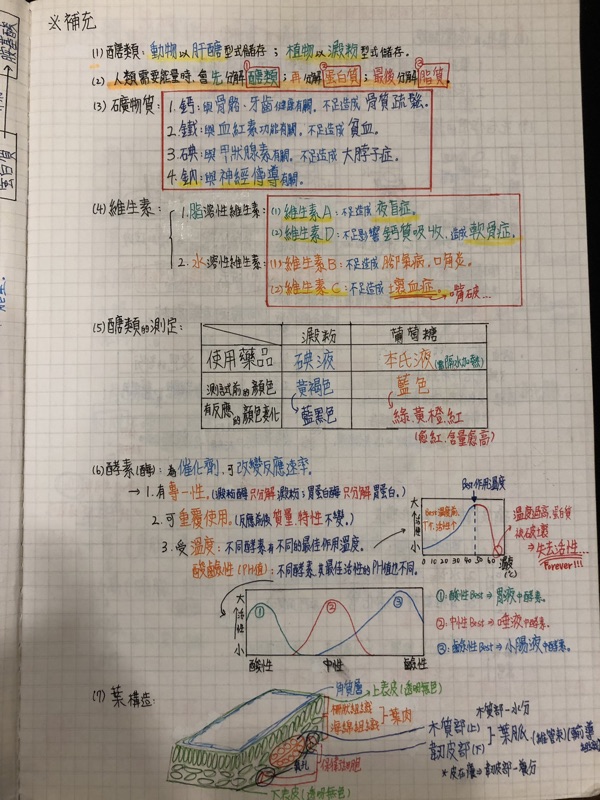 ※補充
(1) 醣類：動物以肝醣型式儲存；植物以澱粉型式儲存。
(2) 人類需要能量時，會先分解①醣類；再分解②蛋白質；最後分解③脂質。
(3) 礦物質：1.鈣：與骨骼、牙齒健康有關，不足造成骨質疏鬆。
2.鐵：與血紅素功能有關，不足造成貧血。
3.碘：與甲狀腺素有關，不足造成大脖子症。
4.鈉：與神經傳導有關。
(4) 維生素：1.脂溶性維生素：(1)維生素A：不足造成夜盲症。
(2)維生素D：不足影響鈣質吸收，造成軟骨症。
2.水溶性維生素：(1)維生素B：不足造成腳氣病，口角炎。
(2)維生素C：不足造成壞血症。
→嘴破...
(5) 醣類的測定：
澱粉 葡萄糖
使用藥品 碘液 本氏液(需隔水加熱)
測試前的顏色 黃褐色 藍色
有反應的顏色變化 藍黑色 綠.黃.橙.紅
(愈紅，含量愈高)
(6) 酵素(酶)：為催化劑，可改變反應速率。
→1.有專一性。(澱粉酶只分解澱粉；胃蛋白酶只分解胃蛋白。)
2.可重覆使用。(反應前後質量.特性不變。)
3.受溫度：不同酵素有不同的最佳作用溫度。
酸鹼性(PH值)：不同酵素，其最佳活性的PH值也不同。
Best作用溫度
大
活性
小
0 10 20 30 40 50 60
溫度(℃)
溫度過高，蛋白質
被破壞
⇒失去活性...
Forever!!!
大
活性
小
① ② ③
酸性 中性 鹼性
①：酸性Best⇒胃液中酵素。
②：中性Best⇒唾液中酵素。
③：鹼性Best⇒小腸液中酵素。
(7) 葉構造：
角質層
上表皮(透明無色)
柵狀組織
海綿組織
葉肉
木質部(上)
韌皮部(下)
葉脈(維管束)(輸導組織)
木質部－水分
氣孔
保衛細胞
下表皮(透明無色)
蛋白質